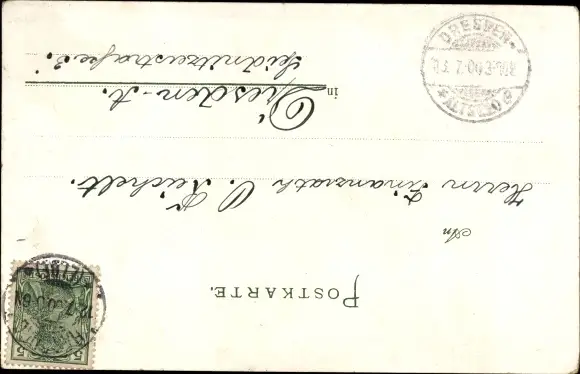 POSTKARTE.
An
Herrn Finanzrath O. Reichelt.
in Dresden-A.
Seidnitzerstraße
DRESDEN-
ALTST.
5